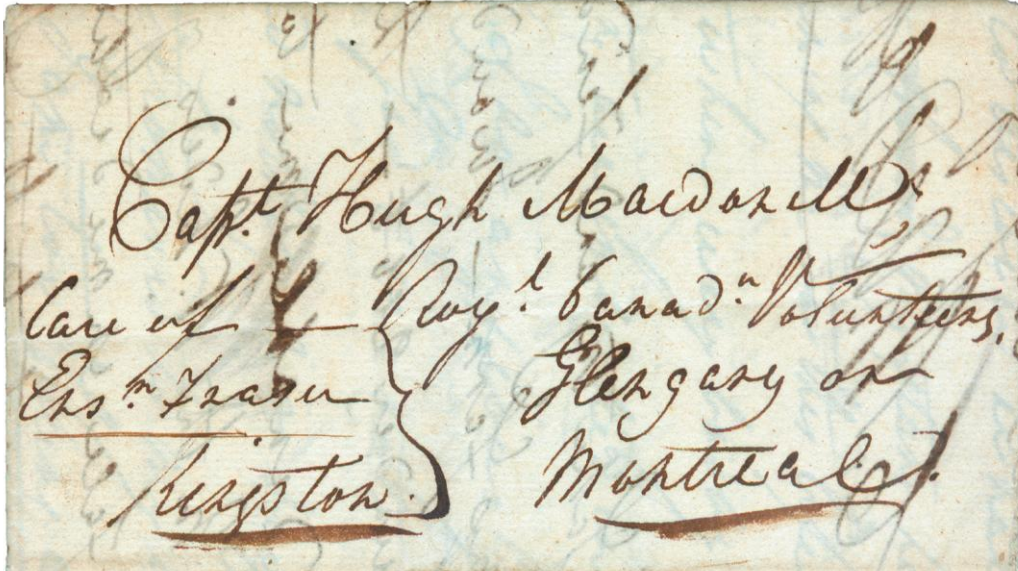 Capt. Hugh Macdonell
Royl. Canadn. Volunteers,
Glengary or
Montreal.
Care of
Ensn. Fraser
Kingston.